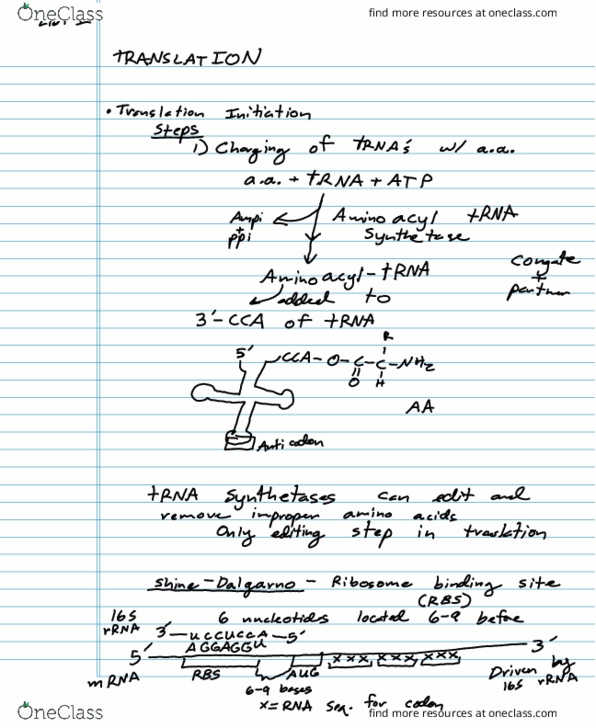 OneClass
find more resources at oneclass.com
TRANSLATION
• Translation Initiation
Steps
1) Charging of tRNA's w/ a.a.
a.a. + tRNA + ATP
Ampi + ppi
Aminoacyl tRNA
Synthetase
Congate + partner
Aminoacyl-tRNA
added to
3'-CCA of tRNA
R
5' CCA-O-C-C-NH2
O H
AA
Anticodon
tRNA Synthetases can edit and
remove improper amino acids
Only editing step in translation
Shine-Dalgarno - Ribosome binding site
(RBS)
6 nucleotides located 6-9 before
16S rRNA 3'-UCCUCCA-5'
AGGAGGU
5' 3'
mRNA RBS AUG xxx xxx xxx
6-9 bases
Driven by 16S rRNA
x = RNA seq. for codon
OneClass
find more resources at oneclass.com